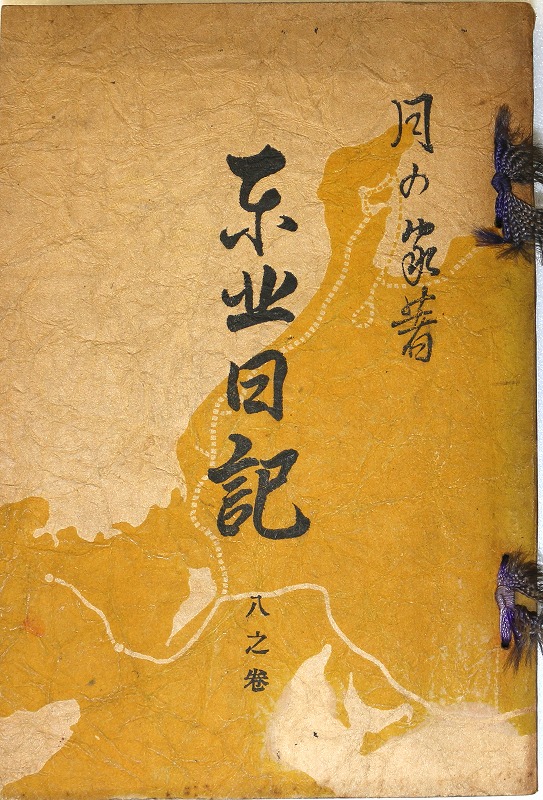 月の家著
东北日記
八之卷